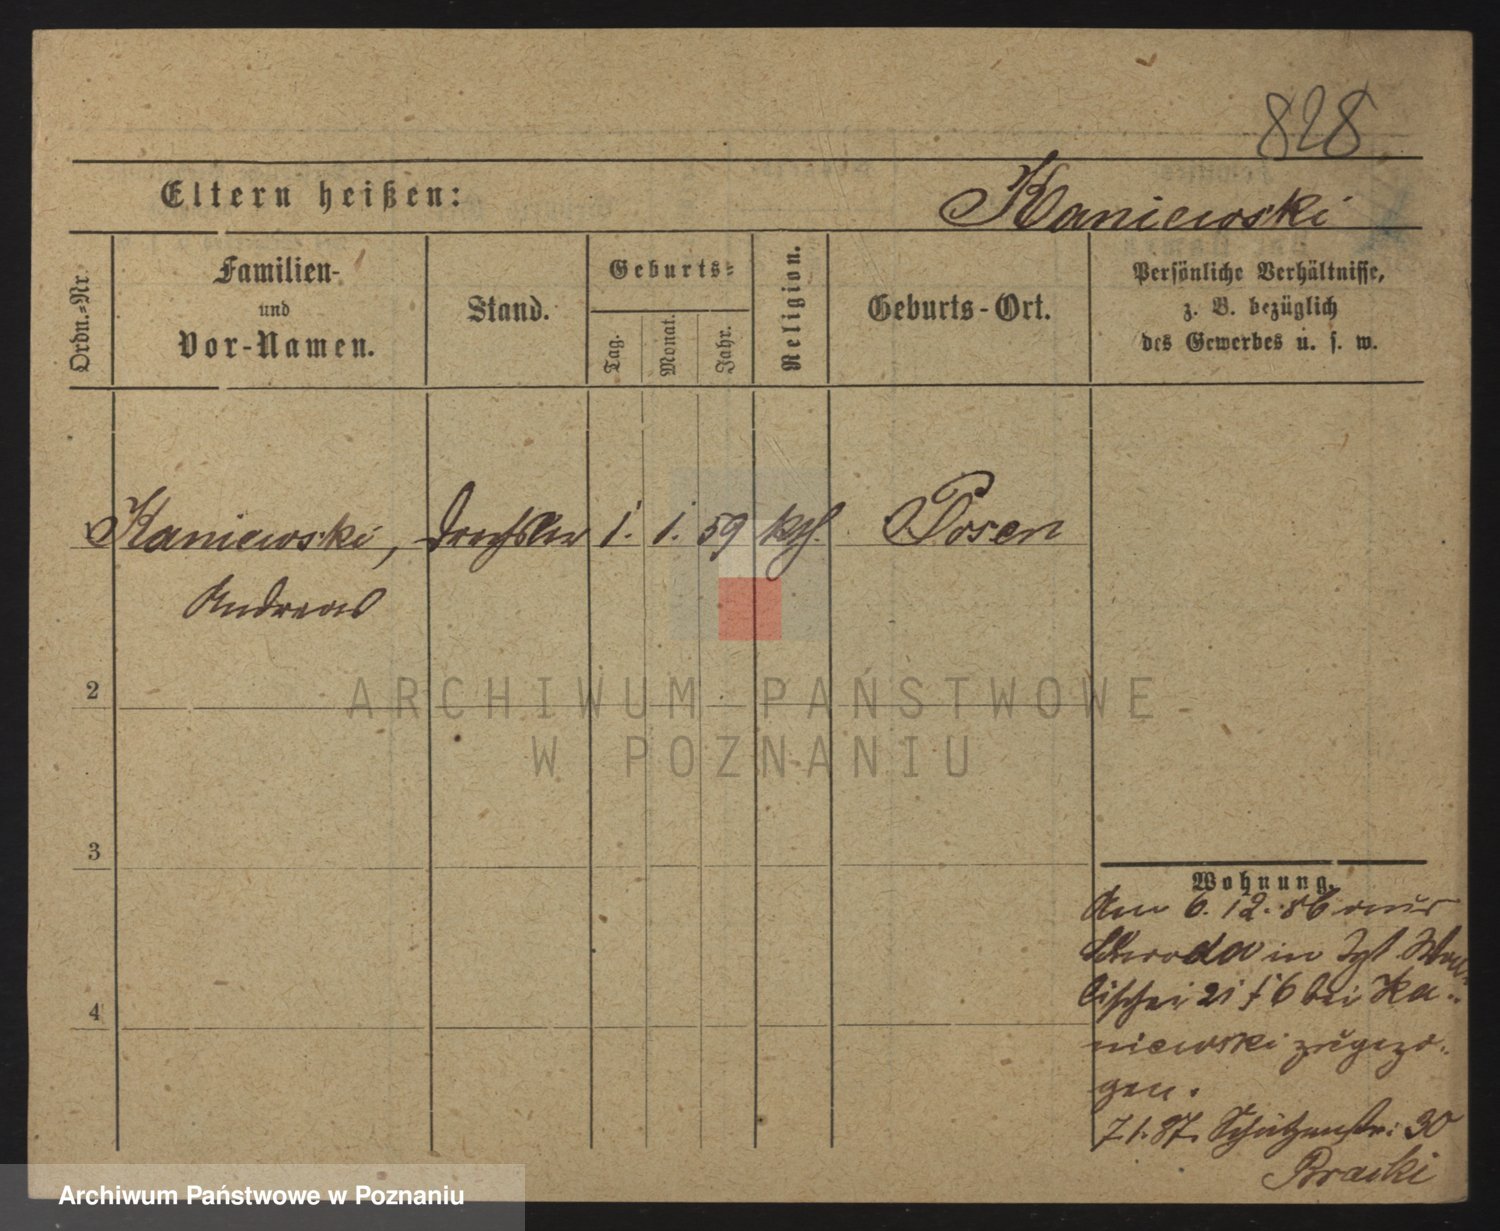 828
Eltern heißen:
Kaniewski
Ordn.-Nr.
Familien-
und
Vor-Namen.
Stand.
Geburts-
Tag.
Monat.
Jahr.
Religion.
Geburts-Ort.
Persönliche Verhältnisse,
z. B. bezüglich
des Gewerbes u. s. w.
1 Kaniewski, Drechsler 1. 1. 59 kth. Posen
Andreas
2
3
4
Wohnung.
Am 6. 12. 86 aus
Schroda in
lischei 21 bei Ka-
niewski zugezo-
gen.
7.1.87. Schützenstr: 30
ARCHIWUM PAŃSTWOWE
W POZNANIU
Archiwum Państwowe w Poznaniu